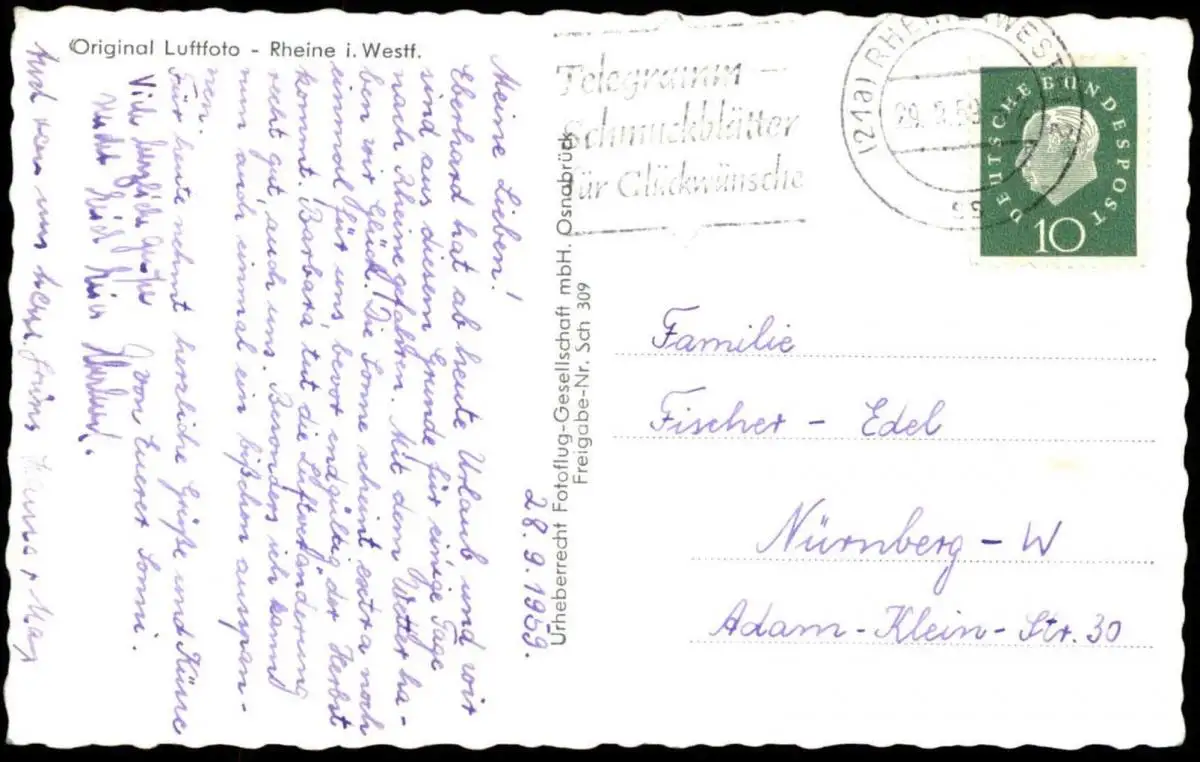 Original Luftfoto - Rheine i. Westf.
28.9.1959.
Meine Lieben!
Eberhard hat ab heute Urlaub und wir
sind aus diesem Grunde für einige Tage
nach Rheine gefahren. Mit dem Wetter ha-
ben wir Glück. Die Sonne scheint extra noch
einmal für uns bevor endgültig der Herbst
kommt. Borka tut die Luftveränderung
recht gut, auch uns. Besonders ich kann
nun auch einmal ein bißchen ausspan-
nen.
Für heute nehmt herzliche Grüße und Küsse
von Eurer Sonni.
Viele herzliche Grüße
Auch von uns Grüße
Urheberrecht Fotoflug-Gesellschaft mbH. Osnabrück
Freigabe-Nr. Sch 309
Telegramm-
Schmuckblätter
für Glückwünsche
(21a) RHEINE (WESTF
29.9.59
DEUTSCHE BUNDESPOST
10
Familie
Fischer - Edel
Nürnberg - W
Adam-Klein-Str. 30